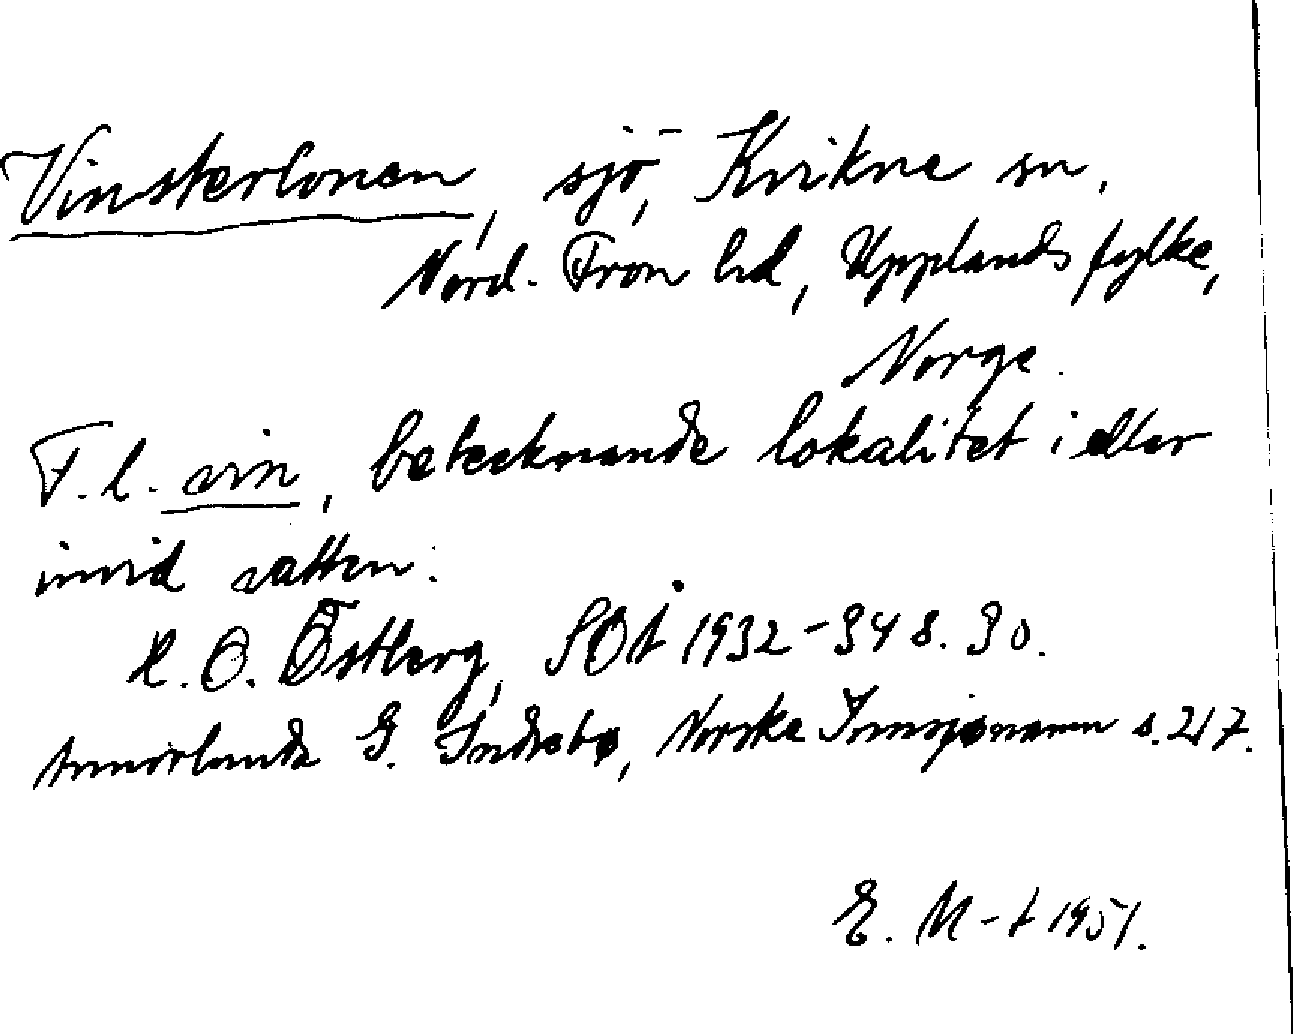 Vinsterlonen, sjö, Kvikne sn,
Nord. Fron hd, Upplands fylke,
Norge.
F.l. vin, betecknande lokalitet i eller
invid vatten:
K. O. Östberg, SOÅ 1932-34 s. 30.
Annorlunda G. Indrebø, Norske Innsjønamn s. 217.
E. M-t 1951.